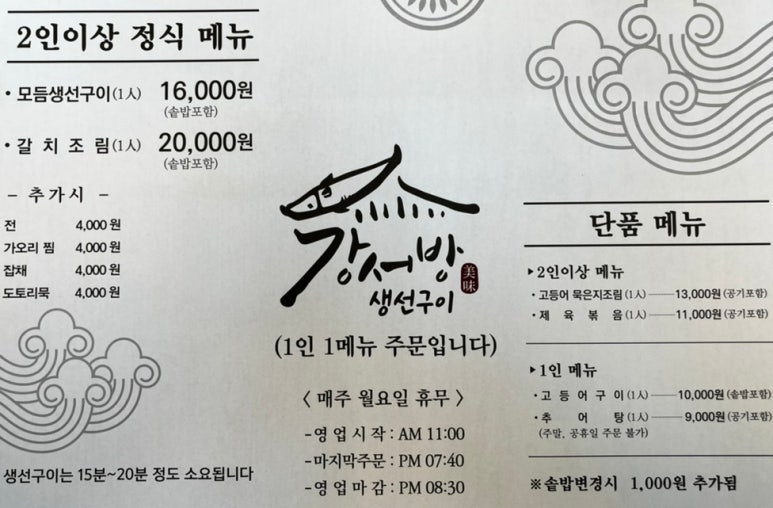 2인이상 정식 메뉴
• 모듬생선구이(1人) 16,000원
(솥밥포함)
• 갈 치 조 림(1人) 20,000원
(솥밥포함)
– 추가시 –
전 4,000원
가오리 찜 4,000원
잡채 4,000원
도토리묵 4,000원
생선구이는 15분~20분 정도 소요됩니다
강서방
美味
생선구이
(1인 1메뉴 주문입니다)
< 매주 월요일 휴무 >
-영 업 시 작 : AM 11:00
-마지막주문 : PM 07:40
-영 업 마 감 : PM 08:30
단품 메뉴
▸2인이상 메뉴
• 고등어 묵은지조림(1人) 13,000원(공기포함)
• 제 육 볶 음(1人) 11,000원(공기포함)
▸1인 메뉴
• 고 등 어 구 이(1人) 10,000원(솥밥포함)
• 추 어 탕(1人) 9,000원(공기포함)
(주말, 공휴일 주문 불가)
※솥밥변경시 1,000원 추가됨